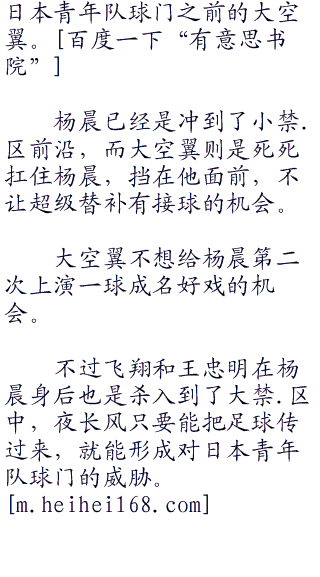 日本青年队球门之前的大空
翼。[百度一下“有意思书
院”]
杨晨已经是冲到了小禁.
区前沿，而大空翼则是死死
扛住杨晨，挡在他面前，不
让超级替补有接球的机会。
大空翼不想给杨晨第二
次上演一球成名好戏的机
会。
不过飞翔和王忠明在杨
晨身后也是杀入到了大禁.区
中，夜长风只要能把足球传
过来，就能形成对日本青年
队球门的威胁。
[m.heihei168.com]